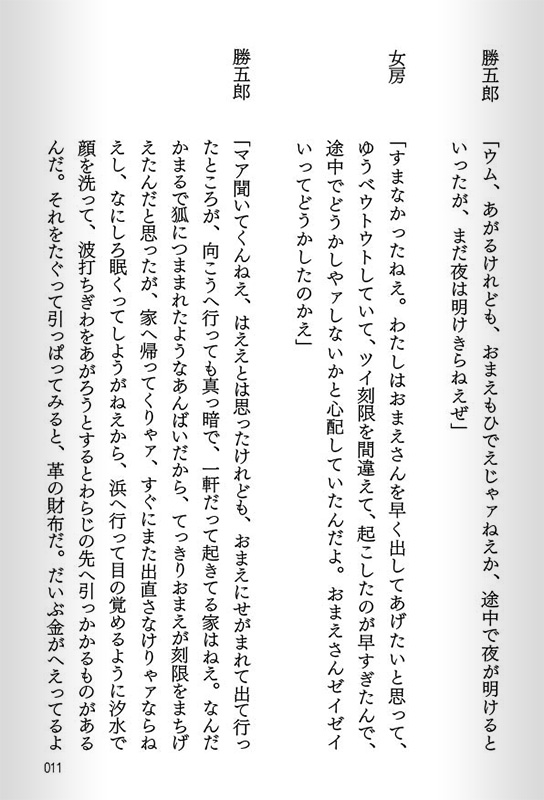 勝五郎　「ウム、あがるけれども、おまえもひでえじゃァねえか、途中で夜が明けると
いったが、まだ夜は明けきらねえぜ」
女房　「すまなかったねえ。わたしはおまえさんを早く出してあげたいと思って、
ゆうべウトウトしていて、ツイ刻限を間違えて、起こしたのが早すぎたんで、
途中でどうかしやァしないかと心配していたんだよ。おまえさんゼイゼイ
いってどうかしたのかえ」
勝五郎　「マア聞いてくんねえ、はええとは思ったけれども、おまえにせがまれて出て行っ
たところが、向こうへ行っても真っ暗で、一軒だって起きてる家はねえ。なんだ
かまるで狐につままれたようなあんばいだから、てっきりおまえが刻限をまちげ
えたんだと思ったが、家へ帰ってくりゃァ、すぐにまた出直さなけりゃァならね
えし、なにしろ眠くってしようがねえから、浜へ行って目の覚めるように汐水で
顔を洗って、波打ちぎわをあがろうとするとわらじの先へ引っかかるものがある
んだ。それをたぐって引っぱってみると、革の財布だ。だいぶ金がへえってるよ
011